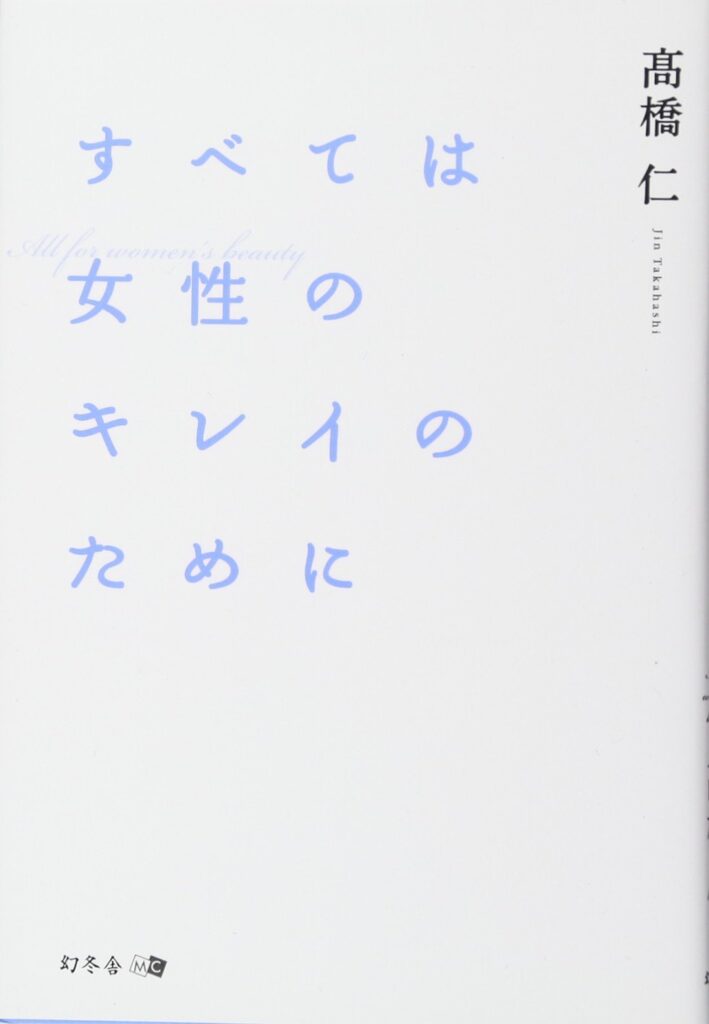 髙橋 仁
Jin Takahashi
すべては
All for women's beauty
女性の
キレイの
ために
幻冬舎 MC